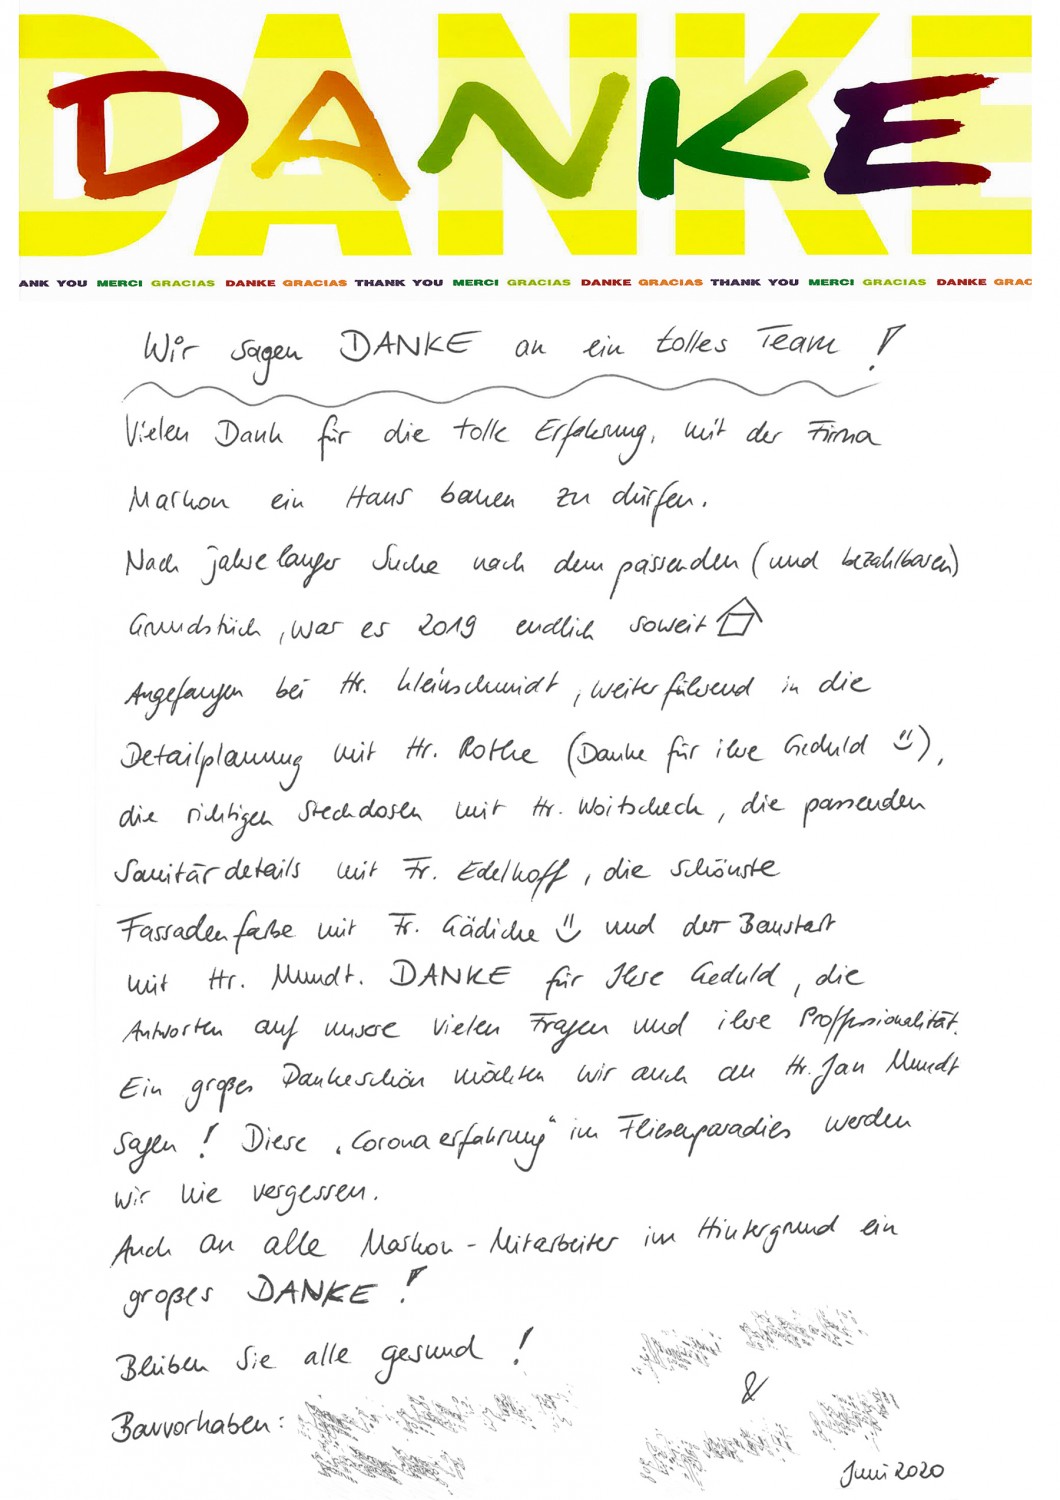 DANKE
DANKE
ANK YOU MERCI GRACIAS DANKE GRACIAS THANK YOU MERCI GRACIAS DANKE GRACIAS THANK YOU MERCI GRACIAS DANKE GRAC
Wir sagen DANKE an ein tolles Team!
Vielen Dank für die tolle Erfahrung, mit der Firma
Markon ein Haus bauen zu dürfen.
Nach jahrelanger Suche nach dem passenden (und bezahlbaren)
Grundstück, war es 2019 endlich soweit
Angefangen bei Hr. Kleinschmidt, weiterführend in die
Detailplanung mit Hr. Rothe (Danke für ihre Geduld),
die richtigen Steckdosen mit Hr. Woitscheck, die passenden
Sanitärdetails mit Fr. Edelhoff, die schönste
Fassadenfarbe mit Fr. Gädicke und der Baustart
mit Hr. Mundt. DANKE für Ihre Geduld, die
Antworten auf unsere vielen Fragen und ihre Proffesionalität.
Ein großes Dankeschön möchten wir auch an Hr. Jan Mundt
sagen! Diese „Coronaerfahrung“ im Fliesenparadies werden
wir nie vergessen.
Auch an alle Markon-Mitarbeiter im Hintergrund ein
großes DANKE!
Bleiben Sie alle gesund!
&
Bauvorhaben:
Juni 2020